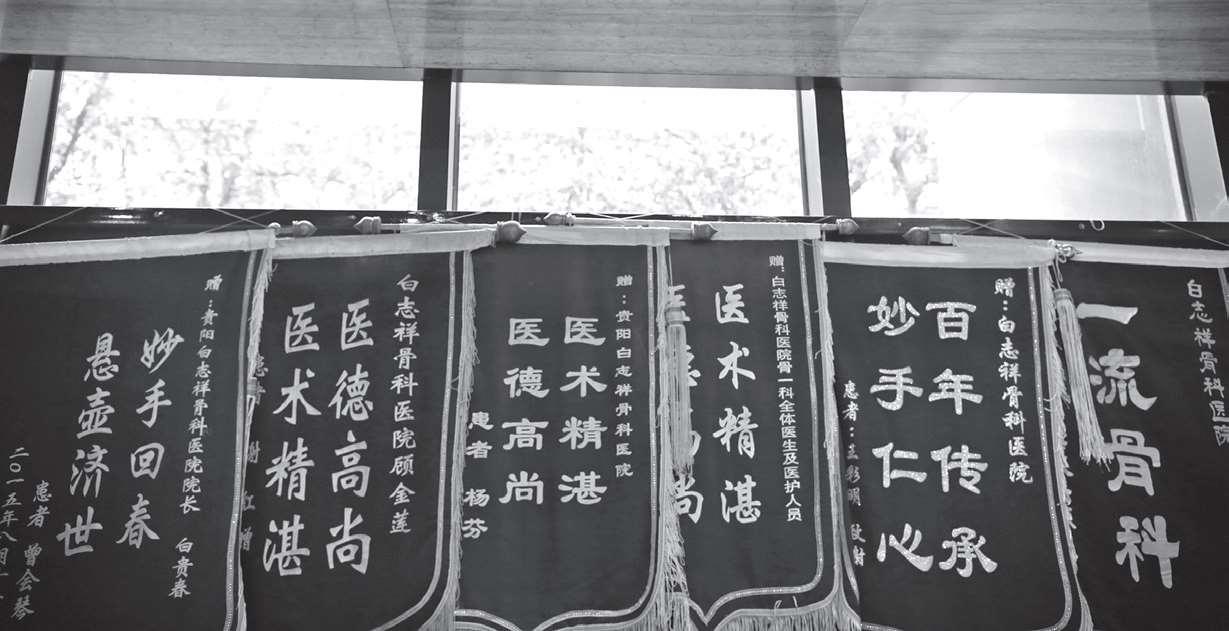 赠：贵阳白志祥骨科医院院长 白贵春
妙手回春
悬壶济世
患者 曾会琴
二〇一五年八月
白志祥骨科医院顾金莲
医德高尚
医术精湛
赠：贵阳白志祥骨科医院
医术精湛
医德高尚
患者 杨芬
赠：白志祥骨科医院骨一科全体医生及医护人员
医术精湛
赠：白志祥骨科医院
百年传承
妙手仁心
患者：王彩明 致谢
白志祥骨科医院
一流骨科